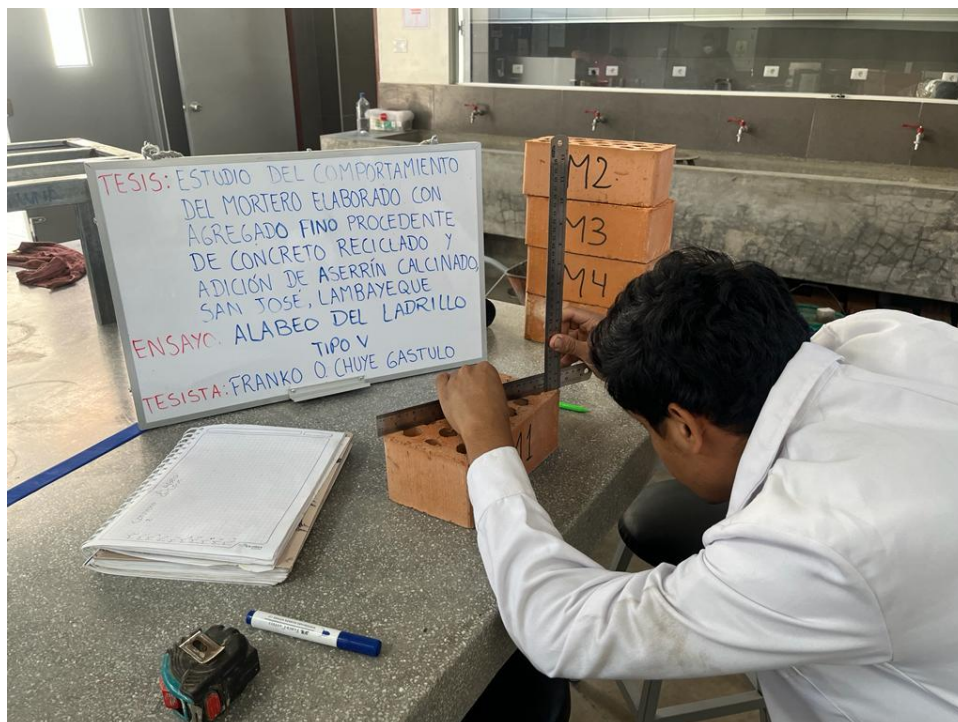 TESIS: ESTUDIO DEL COMPORTAMIENTO
DEL MORTERO ELABORADO CON
AGREGADO FINO PROCEDENTE
DE CONCRETO RECICLADO Y
ADICIÓN DE ASERRÍN CALCINADO,
SAN JOSÉ, LAMBAYEQUE
ENSAYO: ALABEO DEL LADRILLO
TIPO V
TESISTA: FRANKO O. CHUYE GASTULO
M2
M3
M4
M1